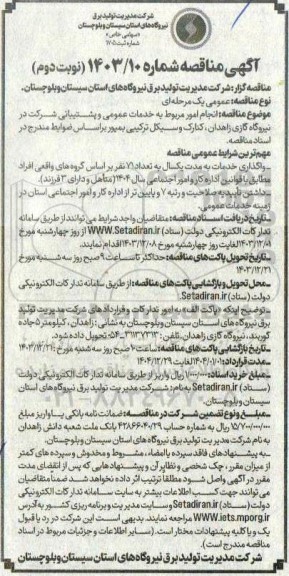 شرکت مدیریت تولید برق
نیروگاه های استان سیستان و بلوچستان
«سهامی خاص»
شماره ثبت ۱۷۰۵
آگهی مناقصه شماره ۱۴۰۳/۱۰ (نوبت دوم)
مناقصه گزار: شرکت مدیریت تولید برق نیروگاه های استان سیستان وبلوچستان.
نوع مناقصه: عمومی یک مرحله ای
موضوع مناقصه: انجام امور مربوط به خدمات عمومی و پشتیبانی شرکت در
نیروگاه گازی زاهدان، کنارک و سیکل ترکیبی بمپور براساس ضوابط مندرج در
اسناد مناقصه.
مهم ترین شرایط عمومی مناقصه
ـ واگذاری خدمات به مدت یکسال به تعداد ۷۱ نفر بر اساس گروه های واقعی افراد
مطابق با قوانین اداره کار و امور اجتماعی سال ۱۴۰۴ (متأهل و دارای ۳ فرزند).
ـ داشتن تأییدیه صلاحیت و رتبه ۷ و پایین تر از اداره کار و امور اجتماعی استان در
زمینه خدمات عمومی.
ـ تاریخ دریافت اسناد مناقصه: متقاضیان واجد شرایط می توانند از طریق سامانه
تدارکات الکترونیکی دولت (ستاد) WWW.Setadiran.ir از روز چهارشنبه مورخ
۱۴۰۳/۱۲/۰۱ لغایت روز چهارشنبه مورخ ۱۴۰۳/۱۲/۰۸ اقدام نمایند.
ـ تاریخ تحویل پاکت های مناقصه: حداکثر تا ساعت ۹ صبح روز سه شنبه مورخ
۱۴۰۳/۱۲/۲۱
ـ محل تحویل و بازگشایی پاکت های مناقصه: از طریق سامانه تدارکات الکترونیکی
دولت (ستاد) Setadiran.ir.
ـ توضیح اینکه «پاکت الف» به امور تدارکات و قراردادهای شرکت مدیریت تولید
برق نیروگاه های استان سیستان وبلوچستان به نشانی: زاهدان، کیلومتر ۵ جاده
گوربند، نیروگاه گازی زاهدان تلفن: ۳۱۱۳۷۳۱۳-۰۵۴ تحویل داده شود.
تاریخ بازگشایی پاکت های مناقصه: ساعت ۱۰ صبح روز سه شنبه مورخ ۱۴۰۳/۱۲/۲۱.
ـ مدت قرارداد: ۱۴۰۴/۰۱/۰۱ لغایت ۱۴۰۴/۱۲/۲۹
ـ مبلغ خرید اسناد: ۱/۰۰۰/۰۰۰ ریال واریز از طریق سامانه تدارکات الکترونیکی دولت
(ستاد) Setadiran.ir به نام: شرکت مدیریت تولید برق نیروگاه های استان
سیستان وبلوچستان.
ـ مبلغ و نوع تضمین شرکت در مناقصه: ضمانت نامه بانکی یا واریز مبلغ
۱۵/۷۰۰/۰۰۰/۰۰۰ ریال به شماره حساب ۴۲۸۶۶۰۴۰۲۹ بانک ملت شعبه دانش زاهدان
به نام شرکت مدیریت تولید برق نیروگاه های استان سیستان وبلوچستان.
ـ به پیشنهادهای فاقد سپرده یا امضاء، مشروط و مخدوش و سپرده های کمتر
از میزان مقرر، چک شخصی و نظایر آن و پیشنهادهایی که پس از انقضای مدت
مقرر در آگهی واصل شود مطلقا ترتیب اثر داده نخواهد شد. ضمنا متقاضیان
می توانند جهت کسب اطلاعات بیشتر به سایت سامانه تدارکات الکترونیکی
دولت (ستاد) Setadiran.ir و سایت مدیریت و برنامه ریزی کشور به آدرس
WWW.iets.mporg.ir مراجعه نمایند. بدیهی است این شرکت در رد یا قبول
یک و یا کلیه پیشنهادات مختار است. (سایر اطلاعات و جزئیات مربوط در اسناد
مناقصه مندرج است).
شرکت مدیریت تولید برق نیروگاه های استان سیستان وبلوچستان